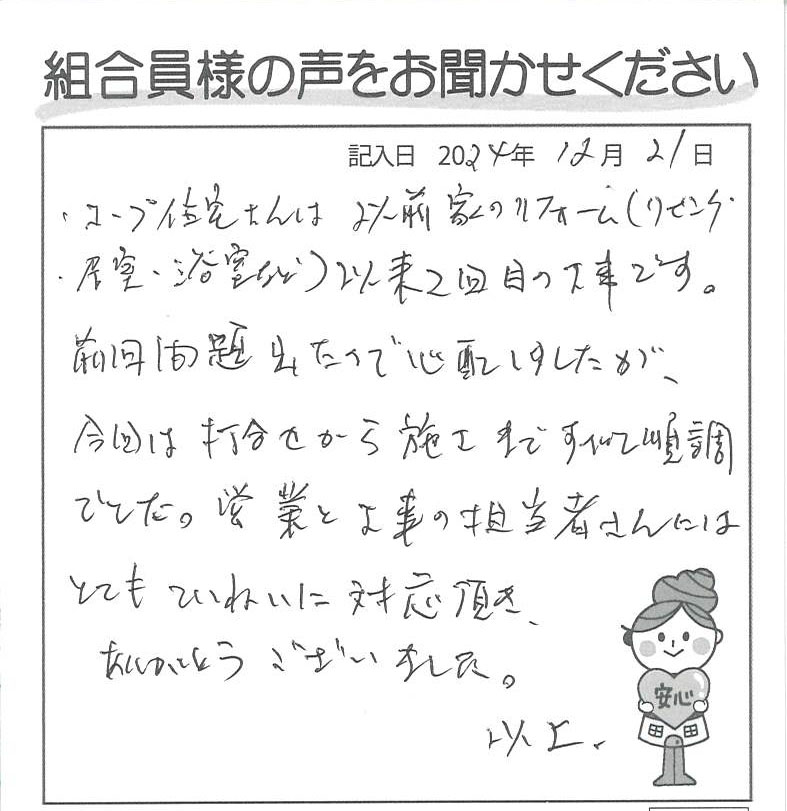 組合員様の声をお聞かせください
記入日 2024年 12月 21日
・コープ住宅さんは 以前家のリフォーム(リビング・
・居室・浴室など)以来2回目の工事です。
前回問題出たので心配しましたが、
今回は打合せから施工まですべて順調
でした。営業と工事の担当者さんには
とてもていねいに対応頂き、
ありがとうございました。
以上、
安心